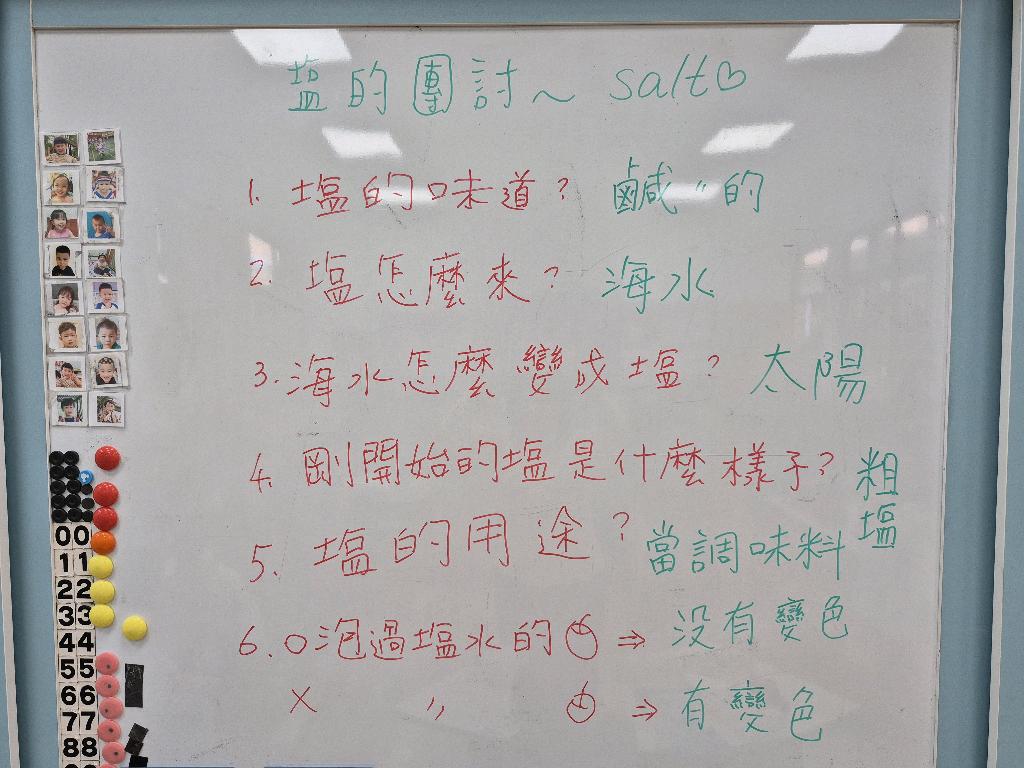 塩的團討~ salt♡
1. 塩的味道? 鹹〃的
2. 塩怎麼來? 海水
3. 海水怎麼變成塩? 太陽
4. 剛開始的塩是什麼樣子? 粗塩
5. 塩的用途? 當調味料
6. O泡過塩水的 ⇒ 沒有變色
× 〃 ⇒ 有變色
00
11
22
33
44
55
66
77
88